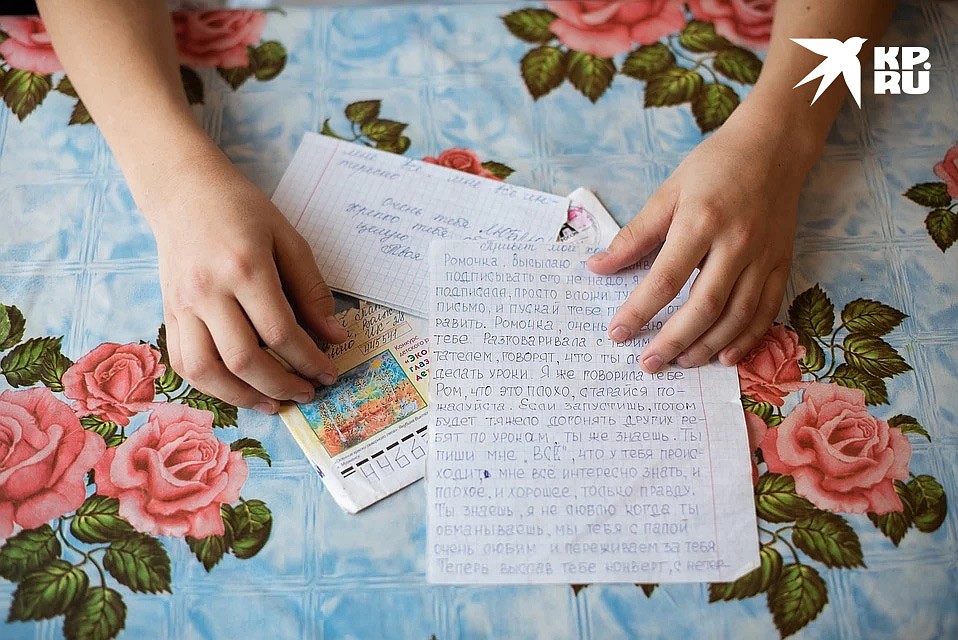 KP.
RU
мне всё. Мне всё ин-
тересно
Очень тебя люблю
крепко тебя
целую
Твоя
Привет мой
Ромочка, высылаю
подписывать его не надо, я
подписала, просто вложи
письмо, и пускай тебе
равить. Ромочка, очень
тебе. Разговаривала с
тателем, говорят, что ты
делать уроки. Я же говорила тебе
Ром, что это плохо, старайся по-
жалуйста. Если запустишь, потом
будет тяжело догонять других ре-
бят по урокам, ты же знаешь. Ты
пиши мне "ВСЁ", что у тебя проис-
ходит, мне всё интересно знать, и
плохое, и хорошее, только правду.
Ты знаешь, я не люблю когда ты
обманываешь, мы тебя с папой
очень любим и переживаем за тебя.
Теперь выслав тебе конверт, с нетер-
Конкурс
детского
«Эко
глаз
дет